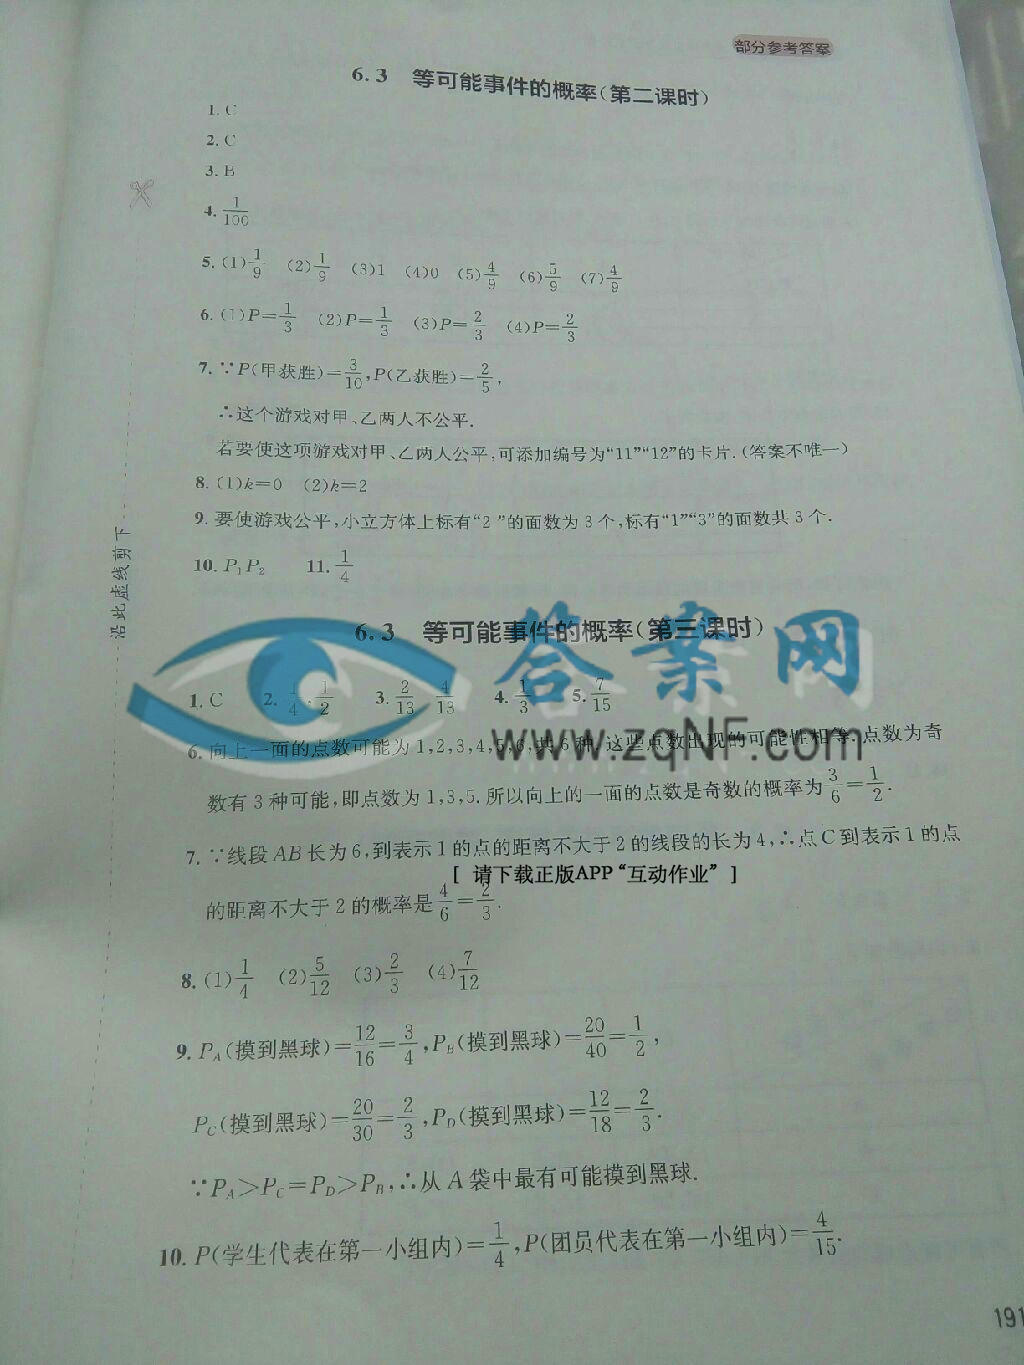 部分参考答案
6.3 等可能事件的概率(第二课时)
1. C
2. C
3. B
4. 1/100
5. (1)1/9 (2)1/9 (3)1 (4)0 (5)4/9 (6)5/9 (7)4/9
6. (1)P=1/3 (2)P=1/3 (3)P=2/3 (4)P=2/3
7. ∵P(甲获胜)=3/10,P(乙获胜)=2/5,
∴这个游戏对甲、乙两人不公平.
若要使这项游戏对甲、乙两人公平,可添加编号为“11”“12”的卡片.(答案不唯一)
8. (1)k=0 (2)k=2
9. 要使游戏公平,小立方体上标有“2”的面数为3个,标有“1”“3”的面数共3个.
10. P₁P₂ 11. 1/4
沿此虚线剪下
答案网
6.3 等可能事件的概率(第三课时)
1. C 2. 1/4 1/2 3. 2/13 4/13 4. 1/3 5. 7/15
www.zqNF.com
6. 向上一面的点数可能为1,2,3,4,5,6,共6种.这些点数出现的可能性相等.点数为奇
数有3种可能,即点数为1,3,5.所以向上的一面的点数是奇数的概率为3/6=1/2.
7. ∵线段AB长为6,到表示1的点的距离不大于2的线段的长为4,∴点C到表示1的点
[ 请下载正版APP“互动作业” ]
的距离不大于2的概率是4/6=2/3.
8. (1)1/4 (2)5/12 (3)2/3 (4)7/12
9. P_A(摸到黑球)=12/16=3/4,P_B(摸到黑球)=20/40=1/2,
P_C(摸到黑球)=20/30=2/3,P_D(摸到黑球)=12/18=2/3.
∵P_A>P_C=P_D>P_B,∴从A袋中最有可能摸到黑球.
10. P(学生代表在第一小组内)=1/4,P(团员代表在第一小组内)=4/15.
191